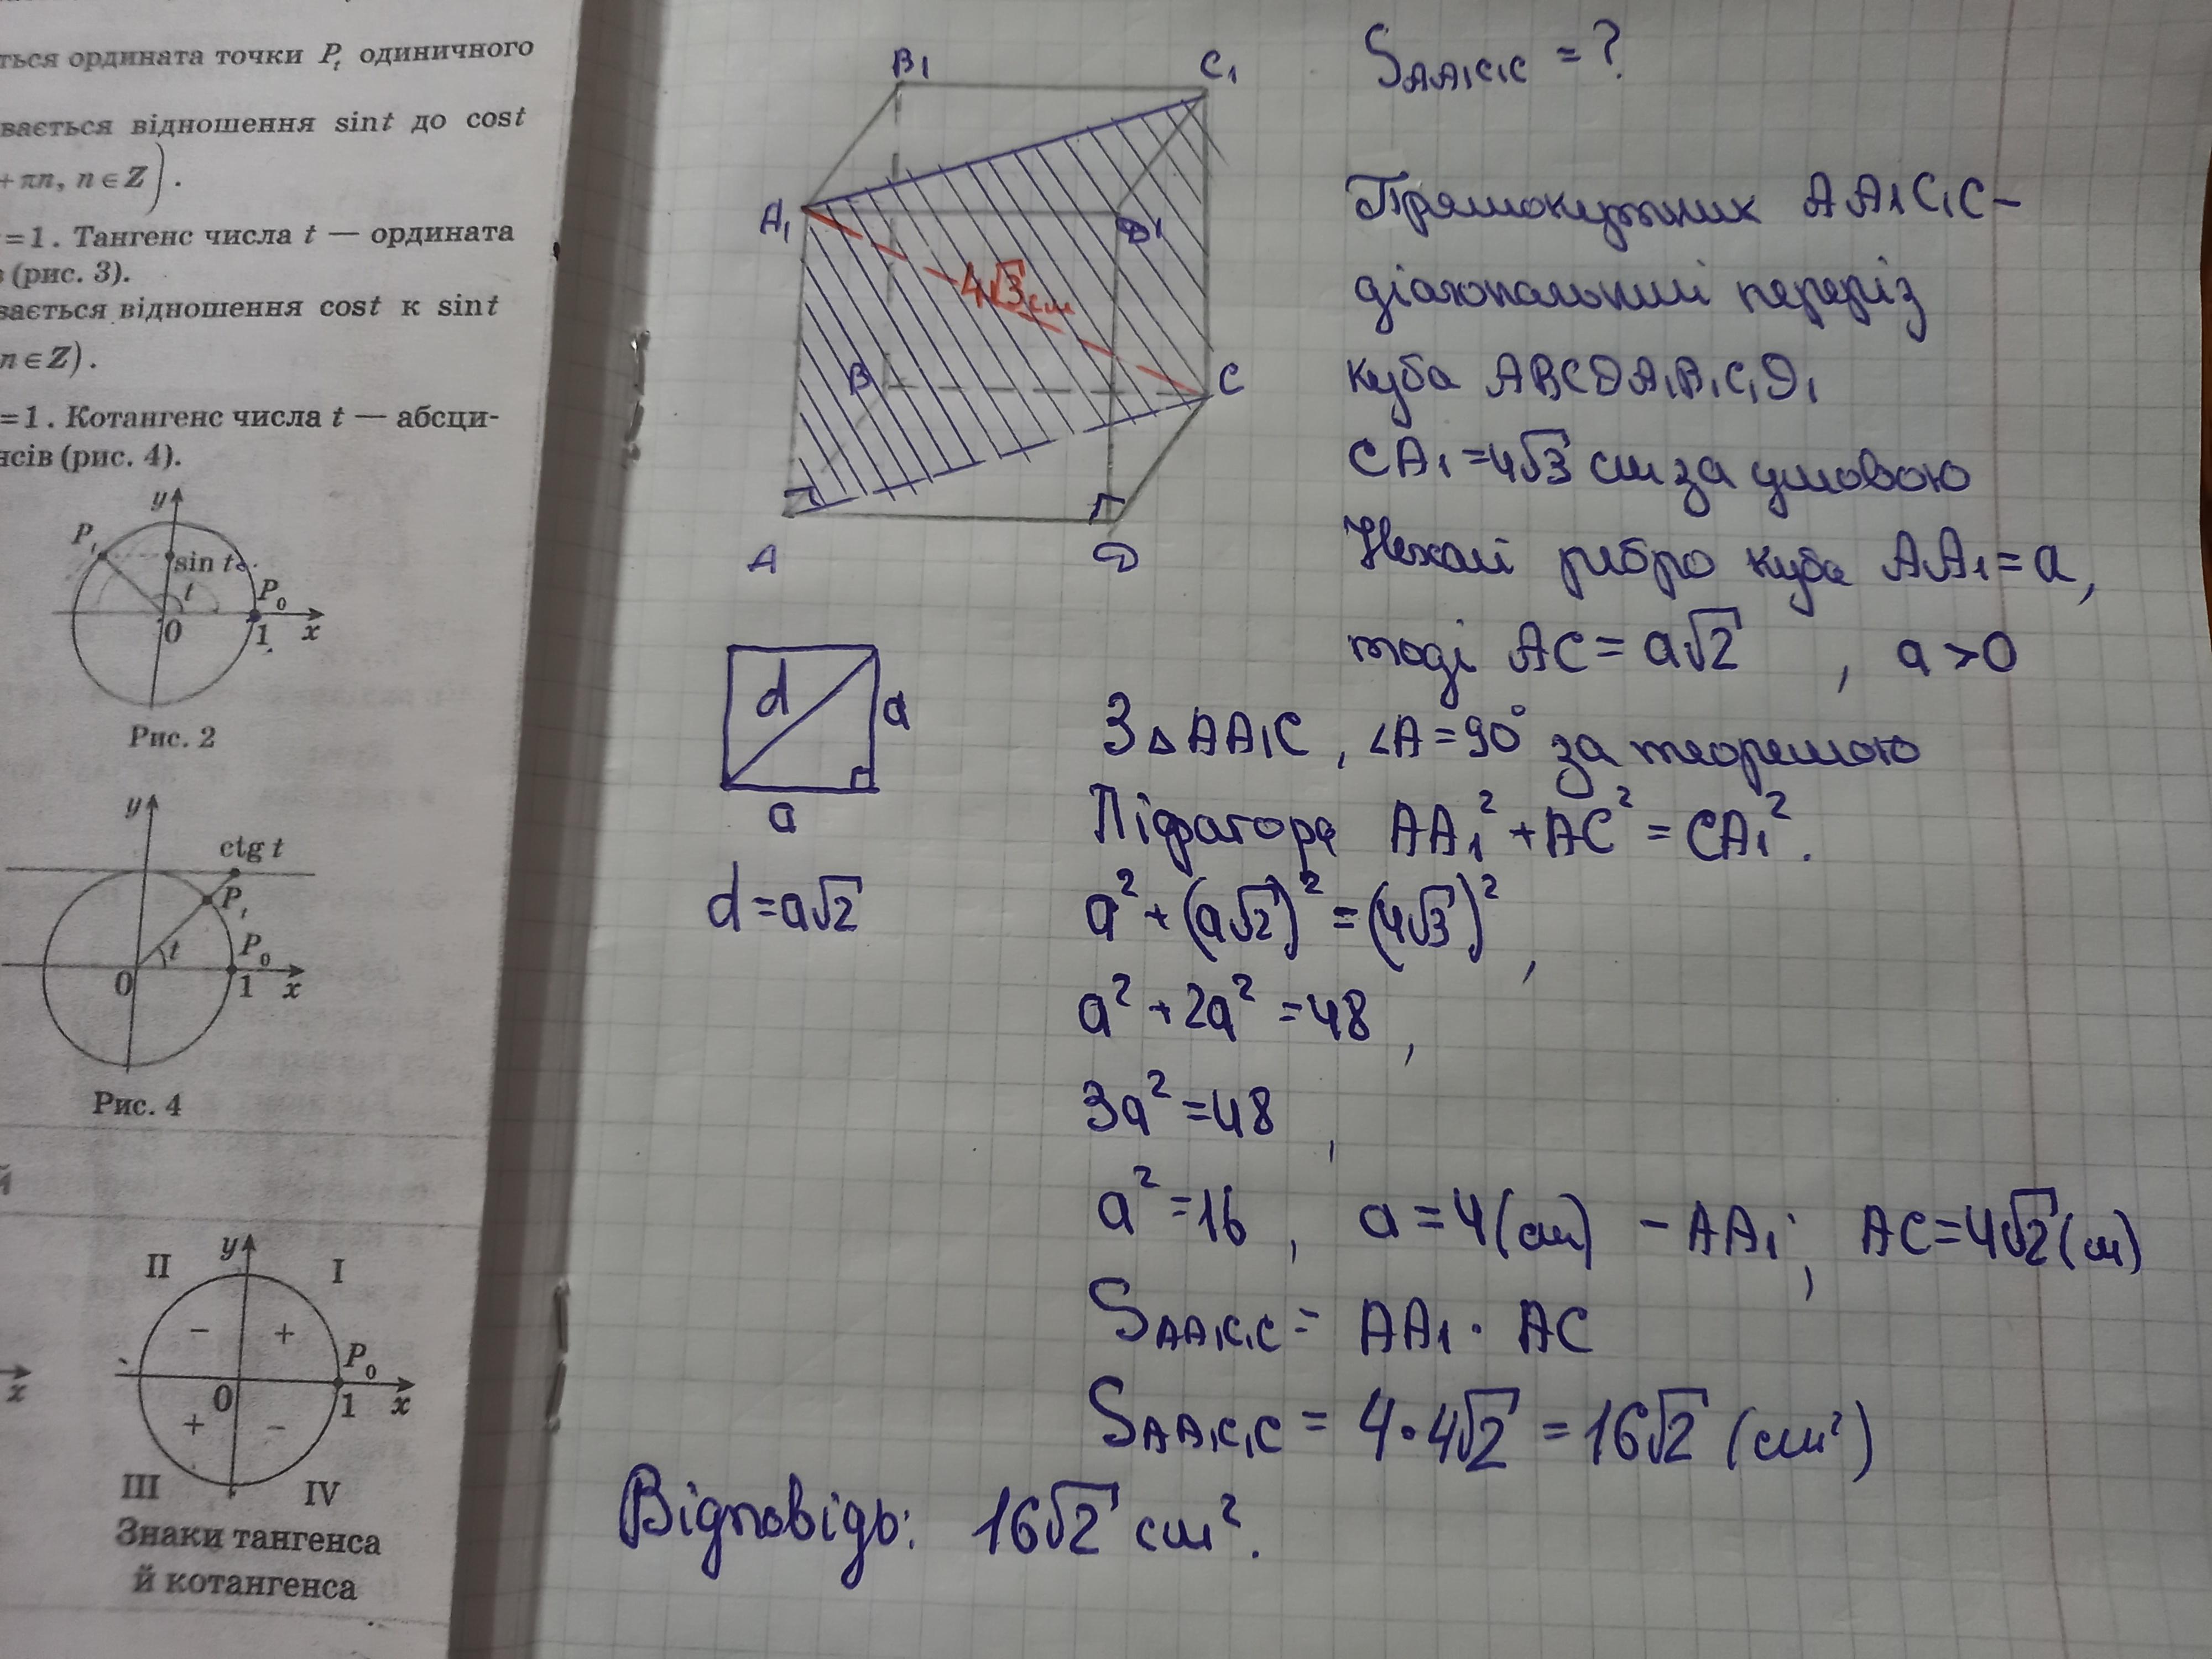 ться ордината точки Pt одиничного
вається відношення sin t до cos t
+ πn, n ∈ Z).
=1. Тангенс числа t — ордината
(рис. 3).
вається відношення cost к sint
n ∈ Z).
=1. Котангенс числа t — абсци-
нсів (рис. 4).
y
Pt
sin t
t
P0
0
1
x
Рис. 2
y
ctg t
Pt
t
P0
0
1
x
Рис. 4
й
y
II
I
−
+
P0
x
0
1
x
+
−
III
IV
Знаки тангенса
й котангенса
B1
C1
A1
D1
4√3 см
B
C
A
D
d
a
a
d = a√2
SAA1C1C = ?
Прямокутник AA1C1C –
діагональний переріз
куба ABCDA1B1C1D1
CA1 = 4√3 см за умовою
Нехай ребро куба AA1 = a,
тоді AC = a√2 , a > 0
З △AA1C, ∠A = 90° за теоремою
Піфагора AA1² + AC² = CA1².
a² + (a√2)² = (4√3)²,
a² + 2a² = 48,
3a² = 48,
a² = 16, a = 4 (см) – AA1; AC = 4√2 (см)
SAA1C1C = AA1 · AC
SAA1C1C = 4 · 4√2 = 16√2 (см²)
Відповідь: 16√2 см².